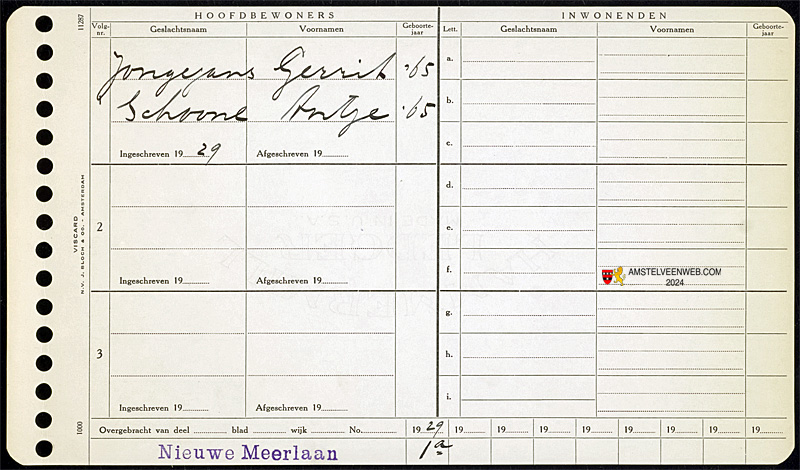 11287
HOOFDBEWONERS
INWONENDEN
Volg-nr. Geslachtsnaam Voornamen Geboorte-jaar Lett. Geslachtsnaam Voornamen Geboorte-jaar
Jongejans Gerrit '65 a.
Schoone Antje '65 b.
c.
Ingeschreven 19 29 Afgeschreven 19
d.
2 e.
f.
Ingeschreven 19 Afgeschreven 19
AMSTELVEENWEB.COM
2024
g.
3 h.
i.
Ingeschreven 19 Afgeschreven 19
VISCARD
N.V. J. BLOCH & CO. - AMSTERDAM
1000
Overgebracht van deel blad wijk No. 19 29 19 19 19 19 19 19 19 19
Nieuwe Meerlaan 1a